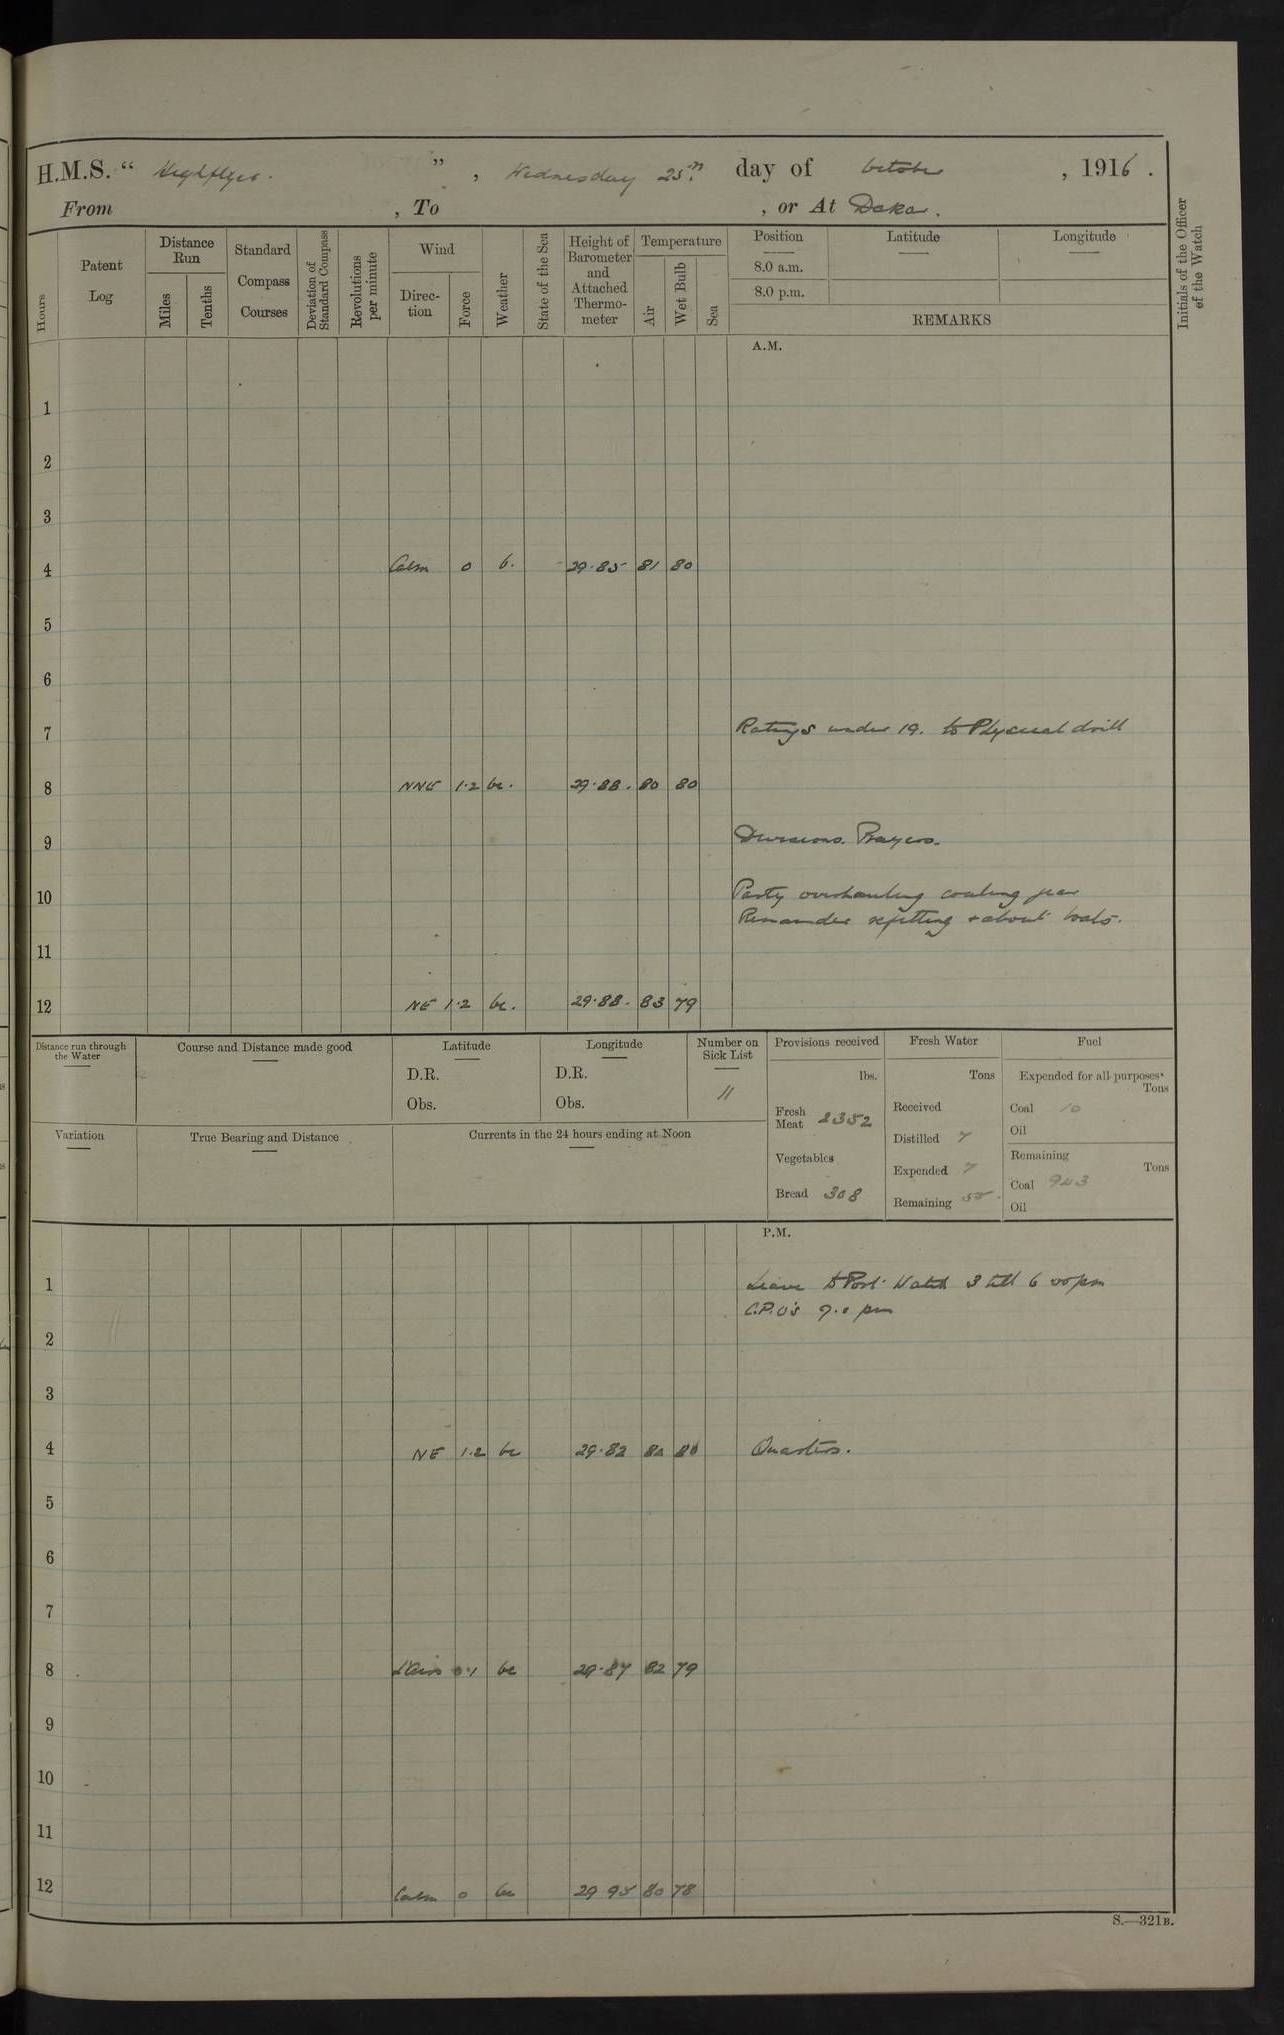 H.M.S. “ Highflyer. ” , Wednesday 25th day of October , 1916 .
From , To , or At Dakar.
Hours
Patent Log
Distance Run
Miles
Tenths
Standard Compass Courses
Deviation of Standard Compass
Revolutions per minute
Wind
Direction
Force
Weather
State of the Sea
Height of Barometer and Attached Thermometer
Temperature
Air
Wet Bulb
Sea
Position
8.0 a.m.
8.0 p.m.
Latitude
Longitude
REMARKS
Initials of the Officer of the Watch
A.M.
1
2
3
4 Calm 0 b. 29.85 81 80
5
6
7 Ratings under 19. to Physical drill
8 NNE 1.2 bc. 29.88. 80 80
9 Divisions. Prayers.
10 Party overhauling coaling gear
Remainder refitting + about boats.
11
12 NE 1.2 bc. 29.88. 83 79
Distance run through the Water
Course and Distance made good
Latitude
D.R.
Obs.
Longitude
D.R.
Obs.
Number on Sick List
11
Provisions received
lbs.
Fresh Meat 2352
Vegetables
Bread 308
Fresh Water
Tons
Received
Distilled 7
Expended 7
Remaining 55.
Fuel
Expended for all purposes
Tons
Coal 10
Oil
Remaining
Tons
Coal 943
Oil
Variation
True Bearing and Distance
Currents in the 24 hours ending at Noon
P.M.
1 Leave to Port Watch 3 till 6 00 pm
C.P.O's 7.0 pm
2
3
4 NE 1.2 bc 29.82 82 80 Quarters.
5
6
7
8 L'Airs 0.1 bc 29.87 82 79
9
10
11
12 Calm 0 bc 29 95 80 78
S.—321B.